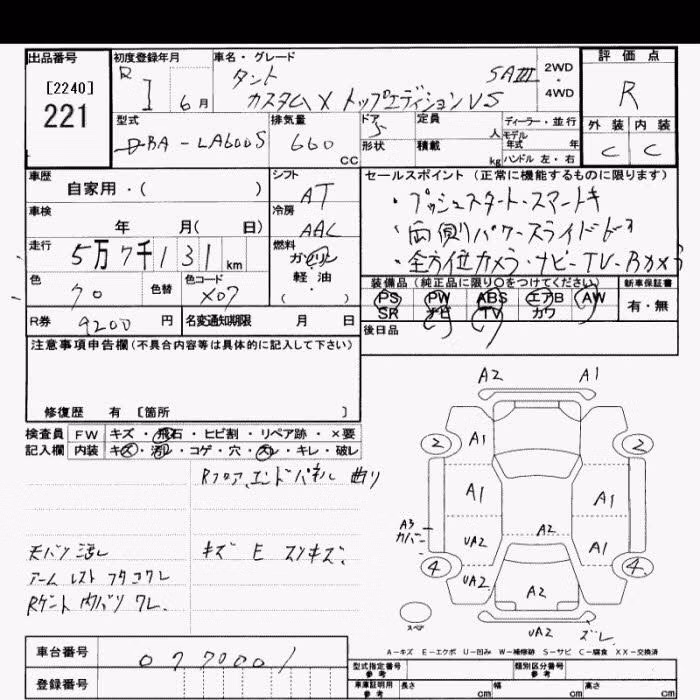 出品番号
[2240]
221
初度登録年月
R
1 6月
車名・グレード
タント
SAIII
カスタムX トップエディションVS
2WD
・
4WD
評価点
R
外装 内装
C C
型式
DBA-LA600S
排気量
660
CC
ドア
5
定員
人
形状
積載
kg
ディーラー・並行
モデル
年式 年
ハンドル 左・右
車歴
自家用・( )
シフト
AT
車検
年 月( 日)
冷房
AAC
走行
5万7千131km
燃料
ガソリン
軽油
( ・ )
色
クロ
色替
色コード
X07
R券
9200円
名変通知期限 月 日
セールスポイント(正常に機能するものに限ります)
・プッシュスタート・スマートキ
・両側パワースライドドア
・全方位カメラ・ナビ-TV-Bカメラ
装備品(純正品に限り○をつけてください)
PS PW ABS エアB AW
SR ナビ TV カワ
新車保証書
有・無
後日品
注意事項申告欄(不具合内容等は具体的に記入して下さい)
修復歴 有 [箇所 ]
検査員
記入欄
FW キズ・飛石・ヒビ割・リペア跡・×要
内装 キズ・汚レ・コゲ・穴・スレ・キレ・破レ
Rフロア、エンドパネル 曲り
天バリ 汚レ
キズ E スリキズ.
アームレスト フタ コワレ
A2 A1
2 2
A1
A1 A1
A3
カバー
UA2 A2 A1
4 4
UA2 A2
スペア
UA2 ズレ
A-キズ E-エクボ U-凹み W-補修跡 S-サビ C-腐食 XX-交換済
車台番号
0270001
登録番号
型式指定番号
参考
類別区分番号
参考
車庫証明用
参考
長さ cm 幅 cm 高さ cm